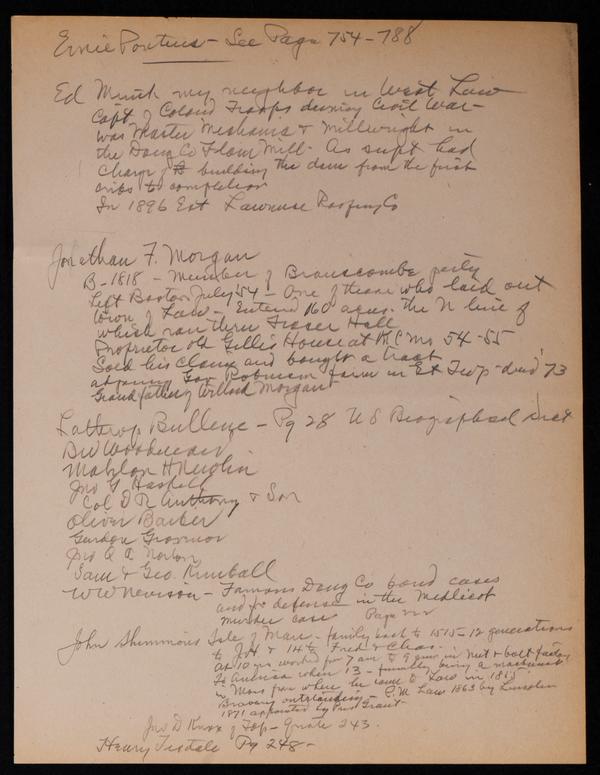 Ernie Pontius - See Page 754-788
Ed my neighbor in West Law
Capt of Colord Troops during Civil War -
was Master Mechanic & Millwright in
the Doug Co Flour Mill - As supt had
charge of building the dam from the first
cribs to completion
In 1896 Est Lawrence Roofing Co
Jonathan F. Morgan
B-1818 - Member of Branscombe party
left Boston July '54 - One of those who laid out
town of Law - Entered 160 acres. the N line of
which ran thru Fraser Hall
Proprietor old Gillis House at K.C. Mo 54-55
Sold his claim and bought a tract
Gov Robinson farm in Twp - died '73
Grandfather of Willard Morgan
Lathrop Bullene - Pg 28 US Biographical Dict
BW Woodward
Mahlon H Newlin
Jno G Haskell
Col D R Anthony & Son
Oliver Barber
Gurdon Grovenor
Jno Q A Norton
Sam & Geo. Kimball
WW Nevison - Famous Doug Co bond cases
and for defense in the Medlicot
murder case Page 222
John Shimmons Isle of Man - family back to 1515 - 12 generations
to Jno & 14th Fred & Chas.
at 10 yrs worked for 7 am to 9 pm in nut & bolt factory
To America when 13 - finally being a machinist
in Mass from where he came to Law in
Bravery outstanding - P.M. Law 1863 by Lincoln
1871 appointed by Pres Grant -
Jno D Knox of Top - Quote 243.
Henry Tisdale Pg 248 -